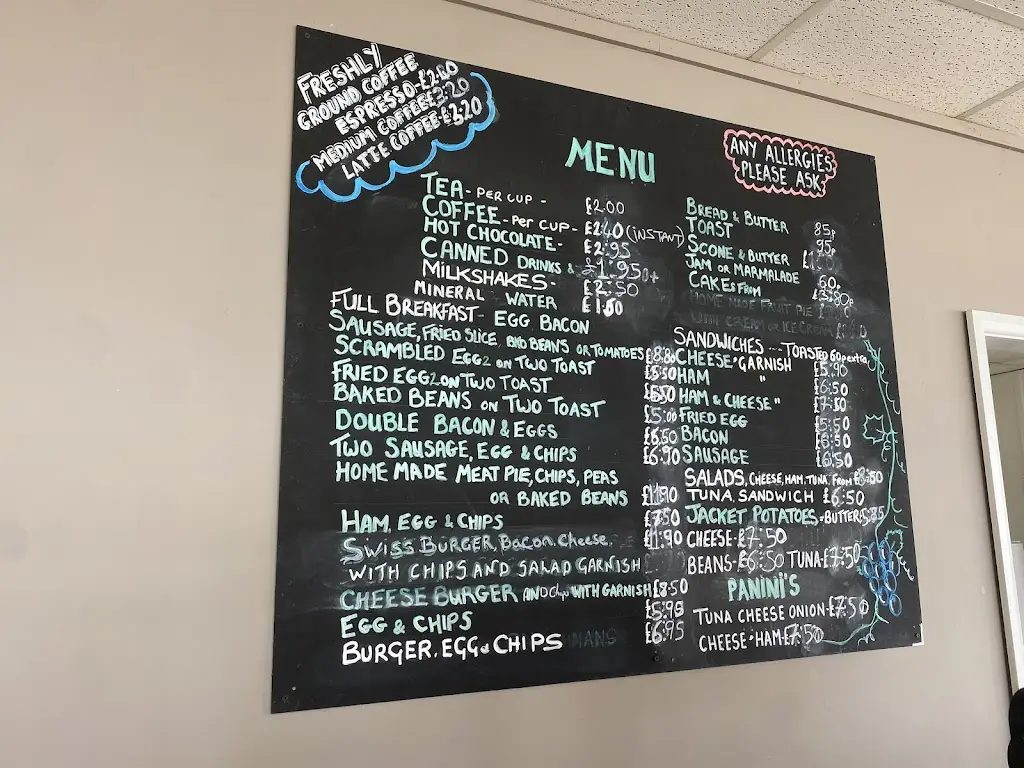 FRESHLY
GROUND COFFEE
ESPRESSO-£2.60
MEDIUM COFFEE £3.20
LATTE COFFEE-£3.20
MENU
ANY ALLERGIES
PLEASE ASK
TEA- PER CUP - £2.00
COFFEE- PER CUP - £2.40 (INSTANT)
HOT CHOCOLATE- £2.95
CANNED DRINKS & £1.95
MILKSHAKES- £2.50
MINERAL WATER £1.50
FULL BREAKFAST- EGG BACON
SAUSAGE, FRIED SLICE, BKD BEANS OR TOMATOES £8.80
SCRAMBLED EGG2 ON TWO TOAST £5.50
FRIED EGG2 ON TWO TOAST
BAKED BEANS ON TWO TOAST £5.00
DOUBLE BACON & EGGS £6.50
TWO SAUSAGE, EGG & CHIPS £6.90
HOME MADE MEAT PIE, CHIPS, PEAS
OR BAKED BEANS £11.90
HAM, EGG & CHIPS £7.50
SWISS BURGER, BACON, CHEESE, £11.90
WITH CHIPS AND SALAD GARNISH
CHEESE BURGER AND Chips WITH GARNISH £8.50
EGG & CHIPS £5.95
BURGER, EGG & CHIPS £6.95
BREAD & BUTTER 85p
TOAST 95p
SCONE & BUTTER
JAM OR MARMALADE 60p
CAKES FROM
HOME MADE FRUIT PIE
WITH CREAM OR ICE CREAM
SANDWICHES --- TOASTED 60p extra
CHEESE "GARNISH £5.90
HAM " £6.50
HAM & CHEESE " £7.50
FRIED EGG £5.50
BACON £6.50
SAUSAGE £6.50
SALADS, CHEESE, HAM, TUNA, FROM £8.50
TUNA, SANDWICH £6.50
JACKET POTATOES - BUTTER
CHEESE-£7.50
BEANS-£6.50 TUNA-£7.50
PANINI'S
TUNA CHEESE ONION-£7.50
CHEESE "HAM £7.50